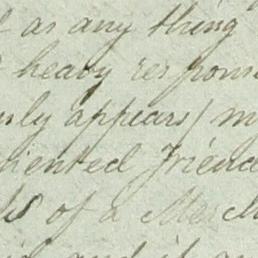 as any thing
heavy respons
appears/ m
iented Friend
of a Merch
and if